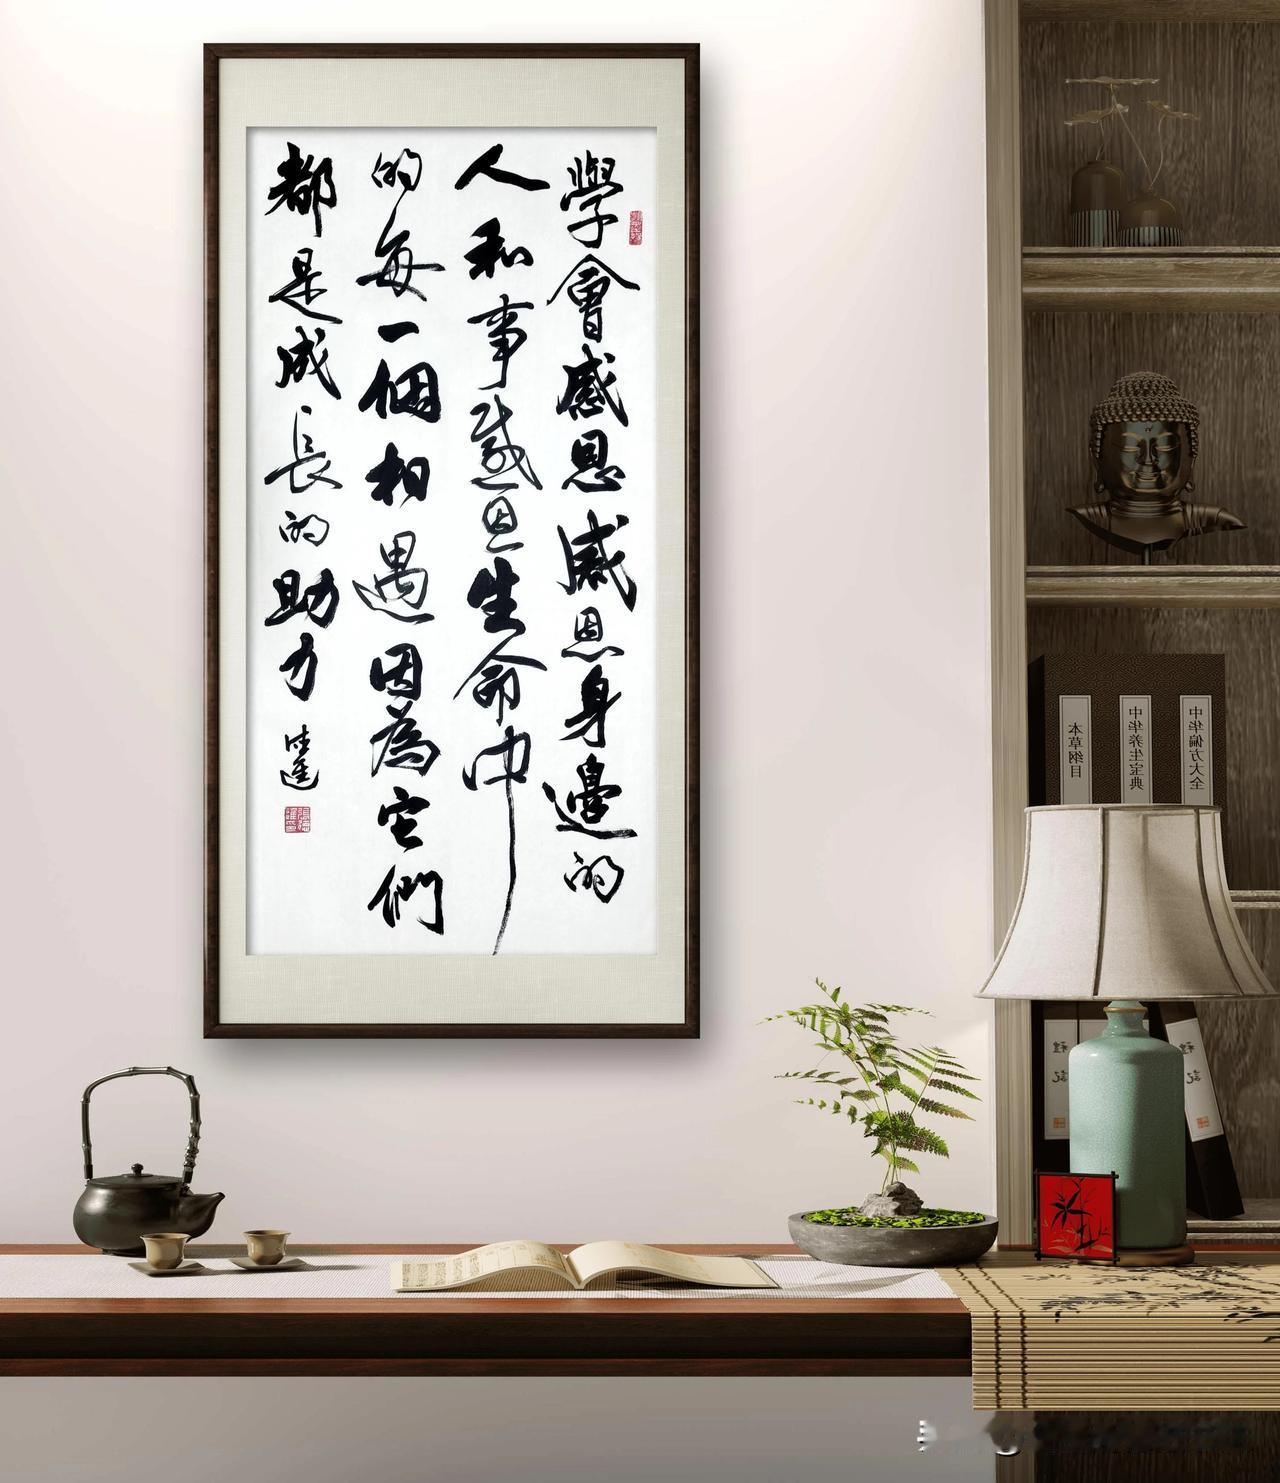 學會感恩感恩身邊的
人和事感恩生命中
的每一個相遇因為它們
都是成長的助力
中华偏方大全
中华养生宝典
本草纲目